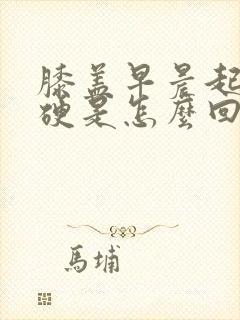 膝盖早晨起
硬是怎麼回
馬埔